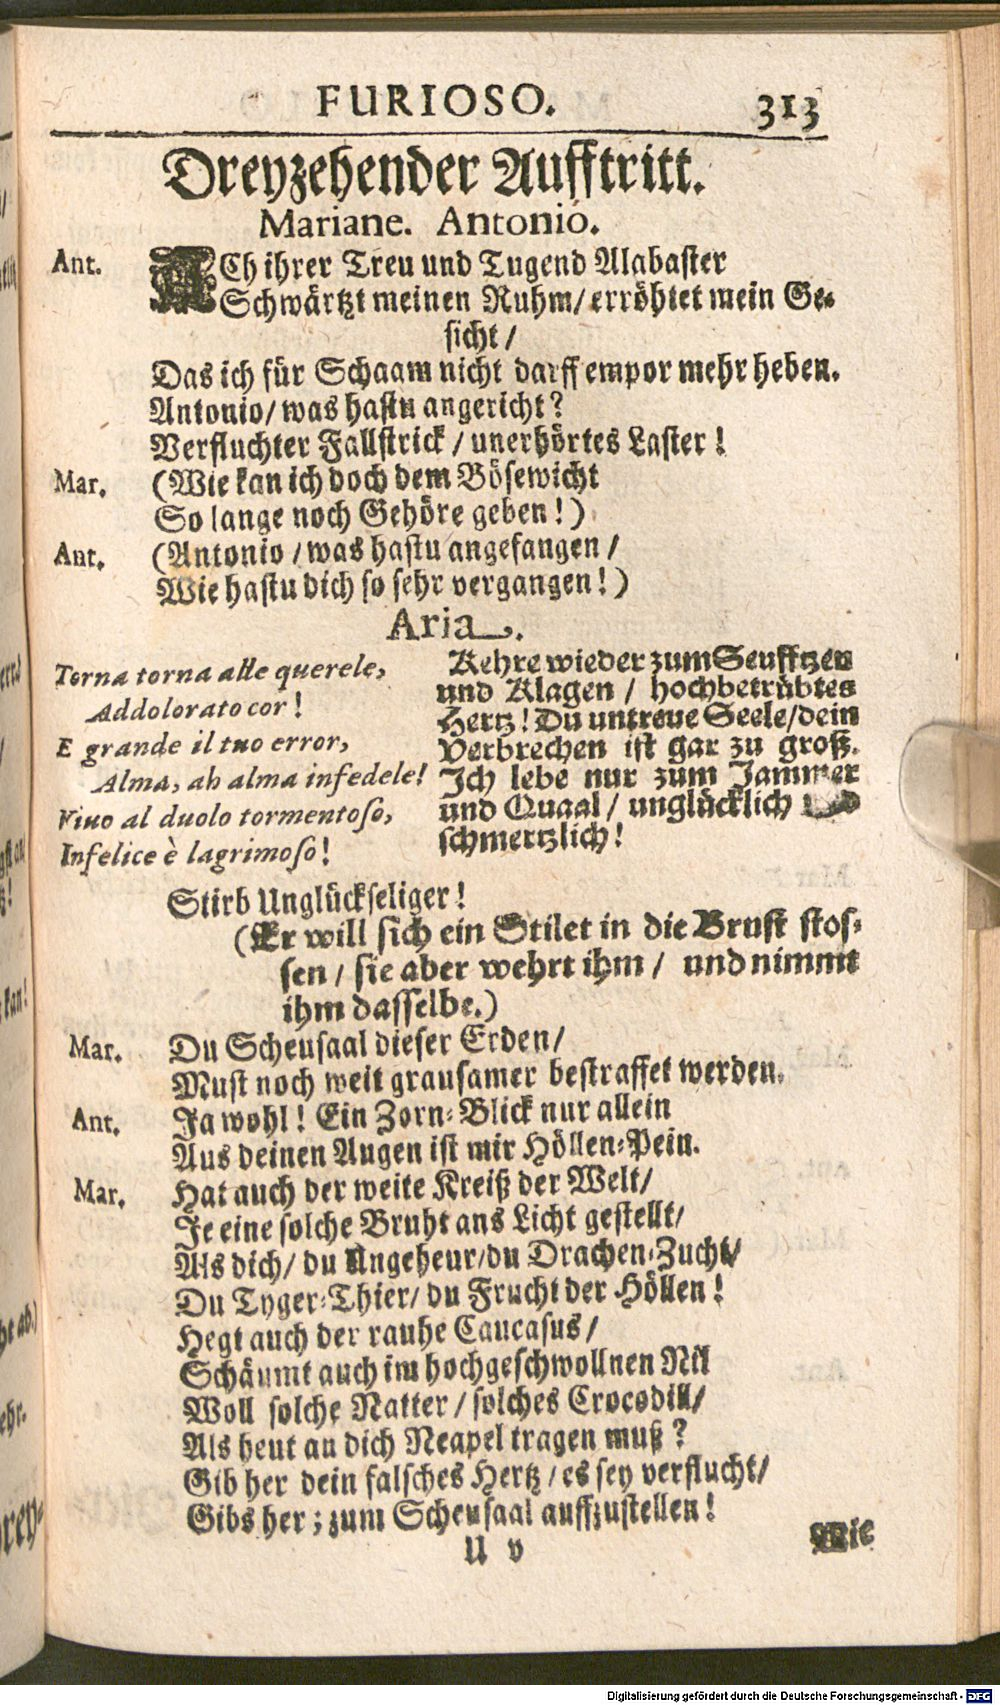 FURIOSO. 313
Dreyzehender Aufftritt.
Mariane. Antonio.
Ant. ACh ihrer Treu und Tugend Alabaster
Schwärtzt meinen Ruhm/ erröhtet mein Ge-
sicht/
Das ich für Schaam nicht darff empor mehr heben.
Antonio/ was hastu angericht?
Verfluchter Fallstrick/ unerhörtes Laster!
Mar. (Wie kan ich doch dem Bösewicht
So lange noch Gehöre geben!)
Ant. (Antonio/ was hastu angefangen/
Wie hastu dich so sehr vergangen!)
Aria.
Torna torna alle querele,
Addolorato cor!
E grande il tuo error,
Alma, ah alma infedele!
Vivo al duolo tormentoso,
Infelice è lagrimoso!
Kehre wieder zum Seufftzen
und Klagen/ hochbetrübtes
Hertz! Du untreue Seele/ dein
Verbrechen ist gar zu groß.
Ich lebe nur zum Jammer
und Quaal/ unglücklich und
schmertzlich!
Stirb Unglückseliger!
(Er will sich ein Stilet in die Brust stos-
sen/ sie aber wehrt ihm/ und nimmt
ihm dasselbe.)
Mar. Du Scheusaal dieser Erden/
Must noch weit grausamer bestraffet werden.
Ant. Ja wohl! Ein Zorn-Blick nur allein
Aus deinen Augen ist mir Höllen-Pein.
Mar. Hat auch der weite Kreiß der Welt/
Je eine solche Bruht ans Licht gestellt/
Als dich/ du Ungeheur/ du Drachen-Zucht/
Du Tyger-Thier/ du Frucht der Höllen!
Hegt auch der rauhe Caucasus/
Schäumt auch im hochgeschwollnen Nil
Woll solche Natter/ solches Crocodill/
Als heut an dich Neapel tragen muß?
Gib her dein falsches Hertz/ es sey verflucht/
Gibs her; zum Scheusaal auffzustellen!
U v Wie
Digitalisierung gefördert durch die Deutsche Forschungsgemeinschaft - DFG